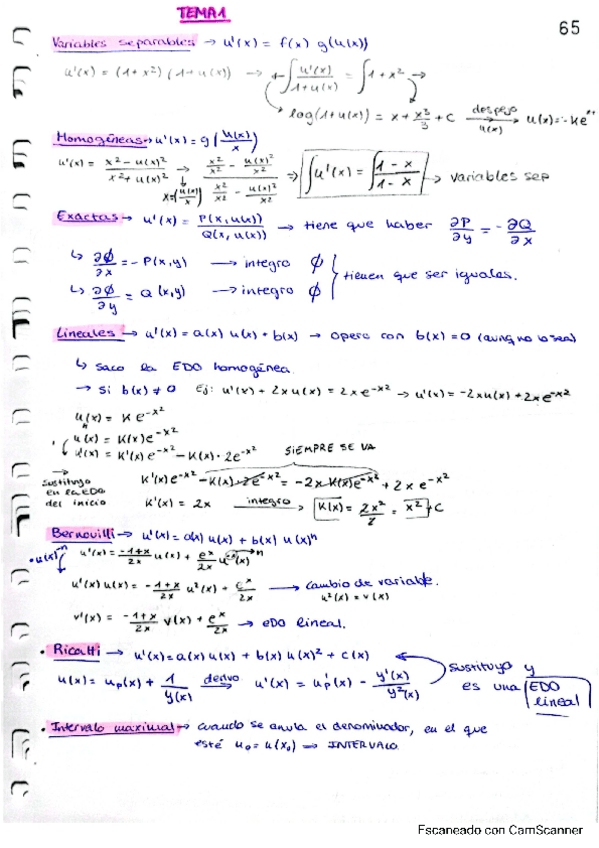 TEMA 1
65
Variables separables → u'(x) = f(x) g(u(x))
u'(x) = (1+x²) (1+u(x)) → ∫ u'(x)/(1+u(x)) = ∫ 1+x² →
log(1+u(x)) = x + x³/3 + C despejo u(x) → u(x) =
Homogéneas → u'(x) = g(u(x)/x)
u'(x) = (x² - u(x)²)/(x² + u(x)²) → (x²/x² - u(x)²/x²)/(x²/x² - u(x)²/x²) ⇒ ∫u'(x) = ∫(1-x)/(1-x) → variables sep
Exactas → u'(x) = P(x,u(x))/Q(x,u(x)) → tiene que haber ∂P/∂y = -∂Q/∂x
↳ ∂ϕ/∂x = -P(x,y) → integro ϕ
tienen que ser iguales.
↳ ∂ϕ/∂y = Q(x,y) → integro ϕ
Lineales → u'(x) = a(x) u(x) + b(x) → opero con b(x) = 0 (aunq no lo sea)
↳ saco la EDO homogénea.
→ si b(x) ≠ 0 Ej: u'(x) + 2x u(x) = 2x e^-x² → u'(x) = -2xu(x) + 2x e^-x²
u(x) = K e^-x²
u(x) = K(x) e^-x²
u'(x) = K'(x) e^-x² - K(x)·2e^-x² SIEMPRE SE VA
sustituyo en la EDO del inicio → K'(x) e^-x² - K(x)·2e^-x² = -2x K(x)e^-x² + 2x e^-x²
K'(x) = 2x integro → K(x) = 2x²/2 = x² + C
Bernouilli → u'(x) = a(x) u(x) + b(x) u(x)ⁿ
·u(x)ⁿ u'(x) = (-1+x)/2x u(x) + eˣ/2x
u'(x) u(x) = -(1+x)/2x u²(x) + eˣ/2x → cambio de variable.
u²(x) = v(x)
v'(x) = -(1+x)/2x v(x) + eˣ/2x → eDO lineal.
• Ricatti → u'(x) = a(x) u(x) + b(x) u(x)² + c(x)
u(x) = up(x) + 1/y(x) derivo → u'(x) = u'p(x) - y'(x)/y²(x)
sustituyo y
es una EDO
lineal
• Intervalo maximal → cuando se anula el denominador, en el que
esté u₀ = u(x₀) ⇒ INTERVALO
Escaneado con CamScanner